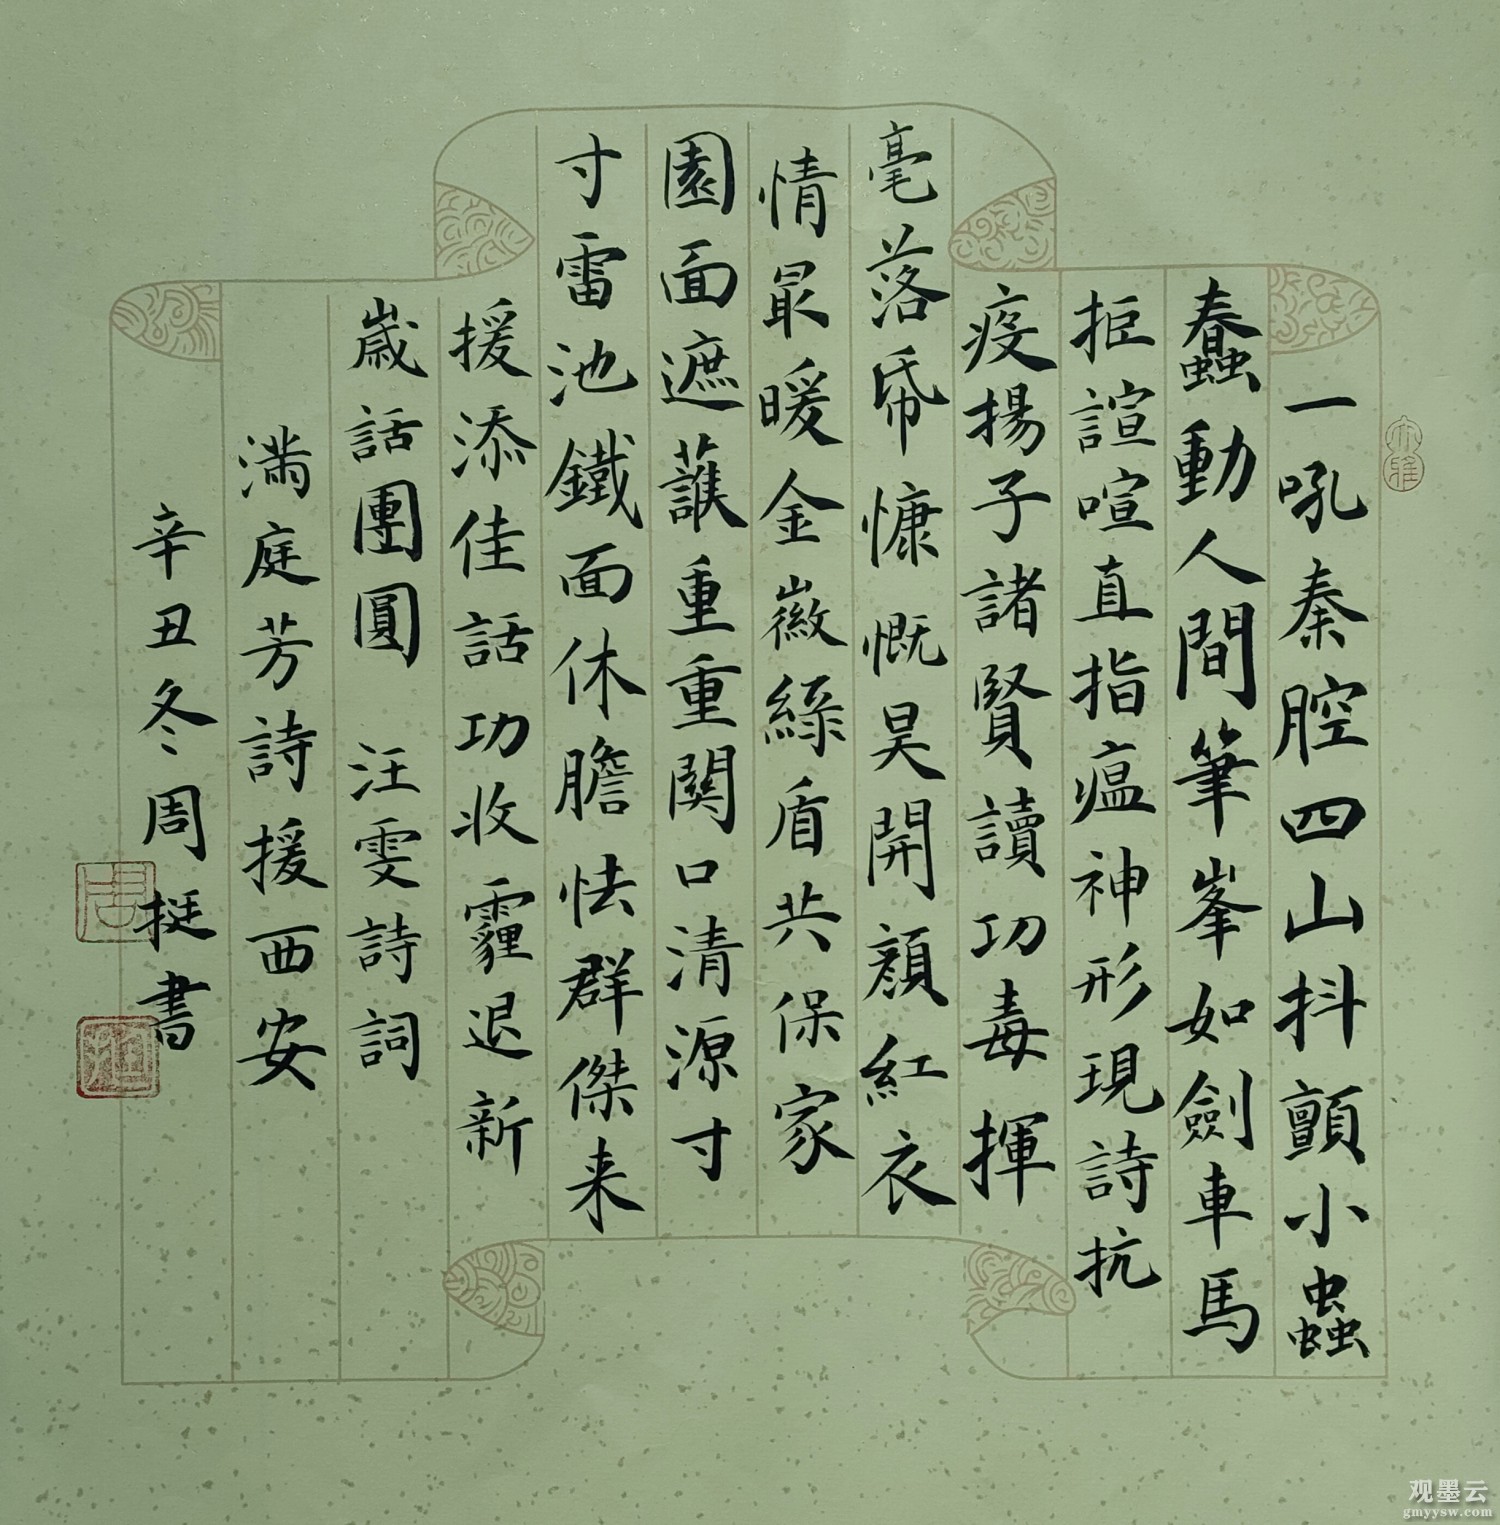 一吼秦腔四山抖顫小蟲
蠢動人間筆峯如劍車馬
拒諠喧直指瘟神形現詩抗
疫揚子諸賢讀功毒揮
毫落帋慷慨昊開顔紅衣
情最暖金徽綠盾共保家
園面遮護重重関口清源寸
寸雷池鐵面休膽怯群傑来
援添佳話功收霾退新
歲話團圓 汪雯詩詞
满庭芳詩援西安
辛丑冬周挺書
大雅
观墨云
gmyysw.com